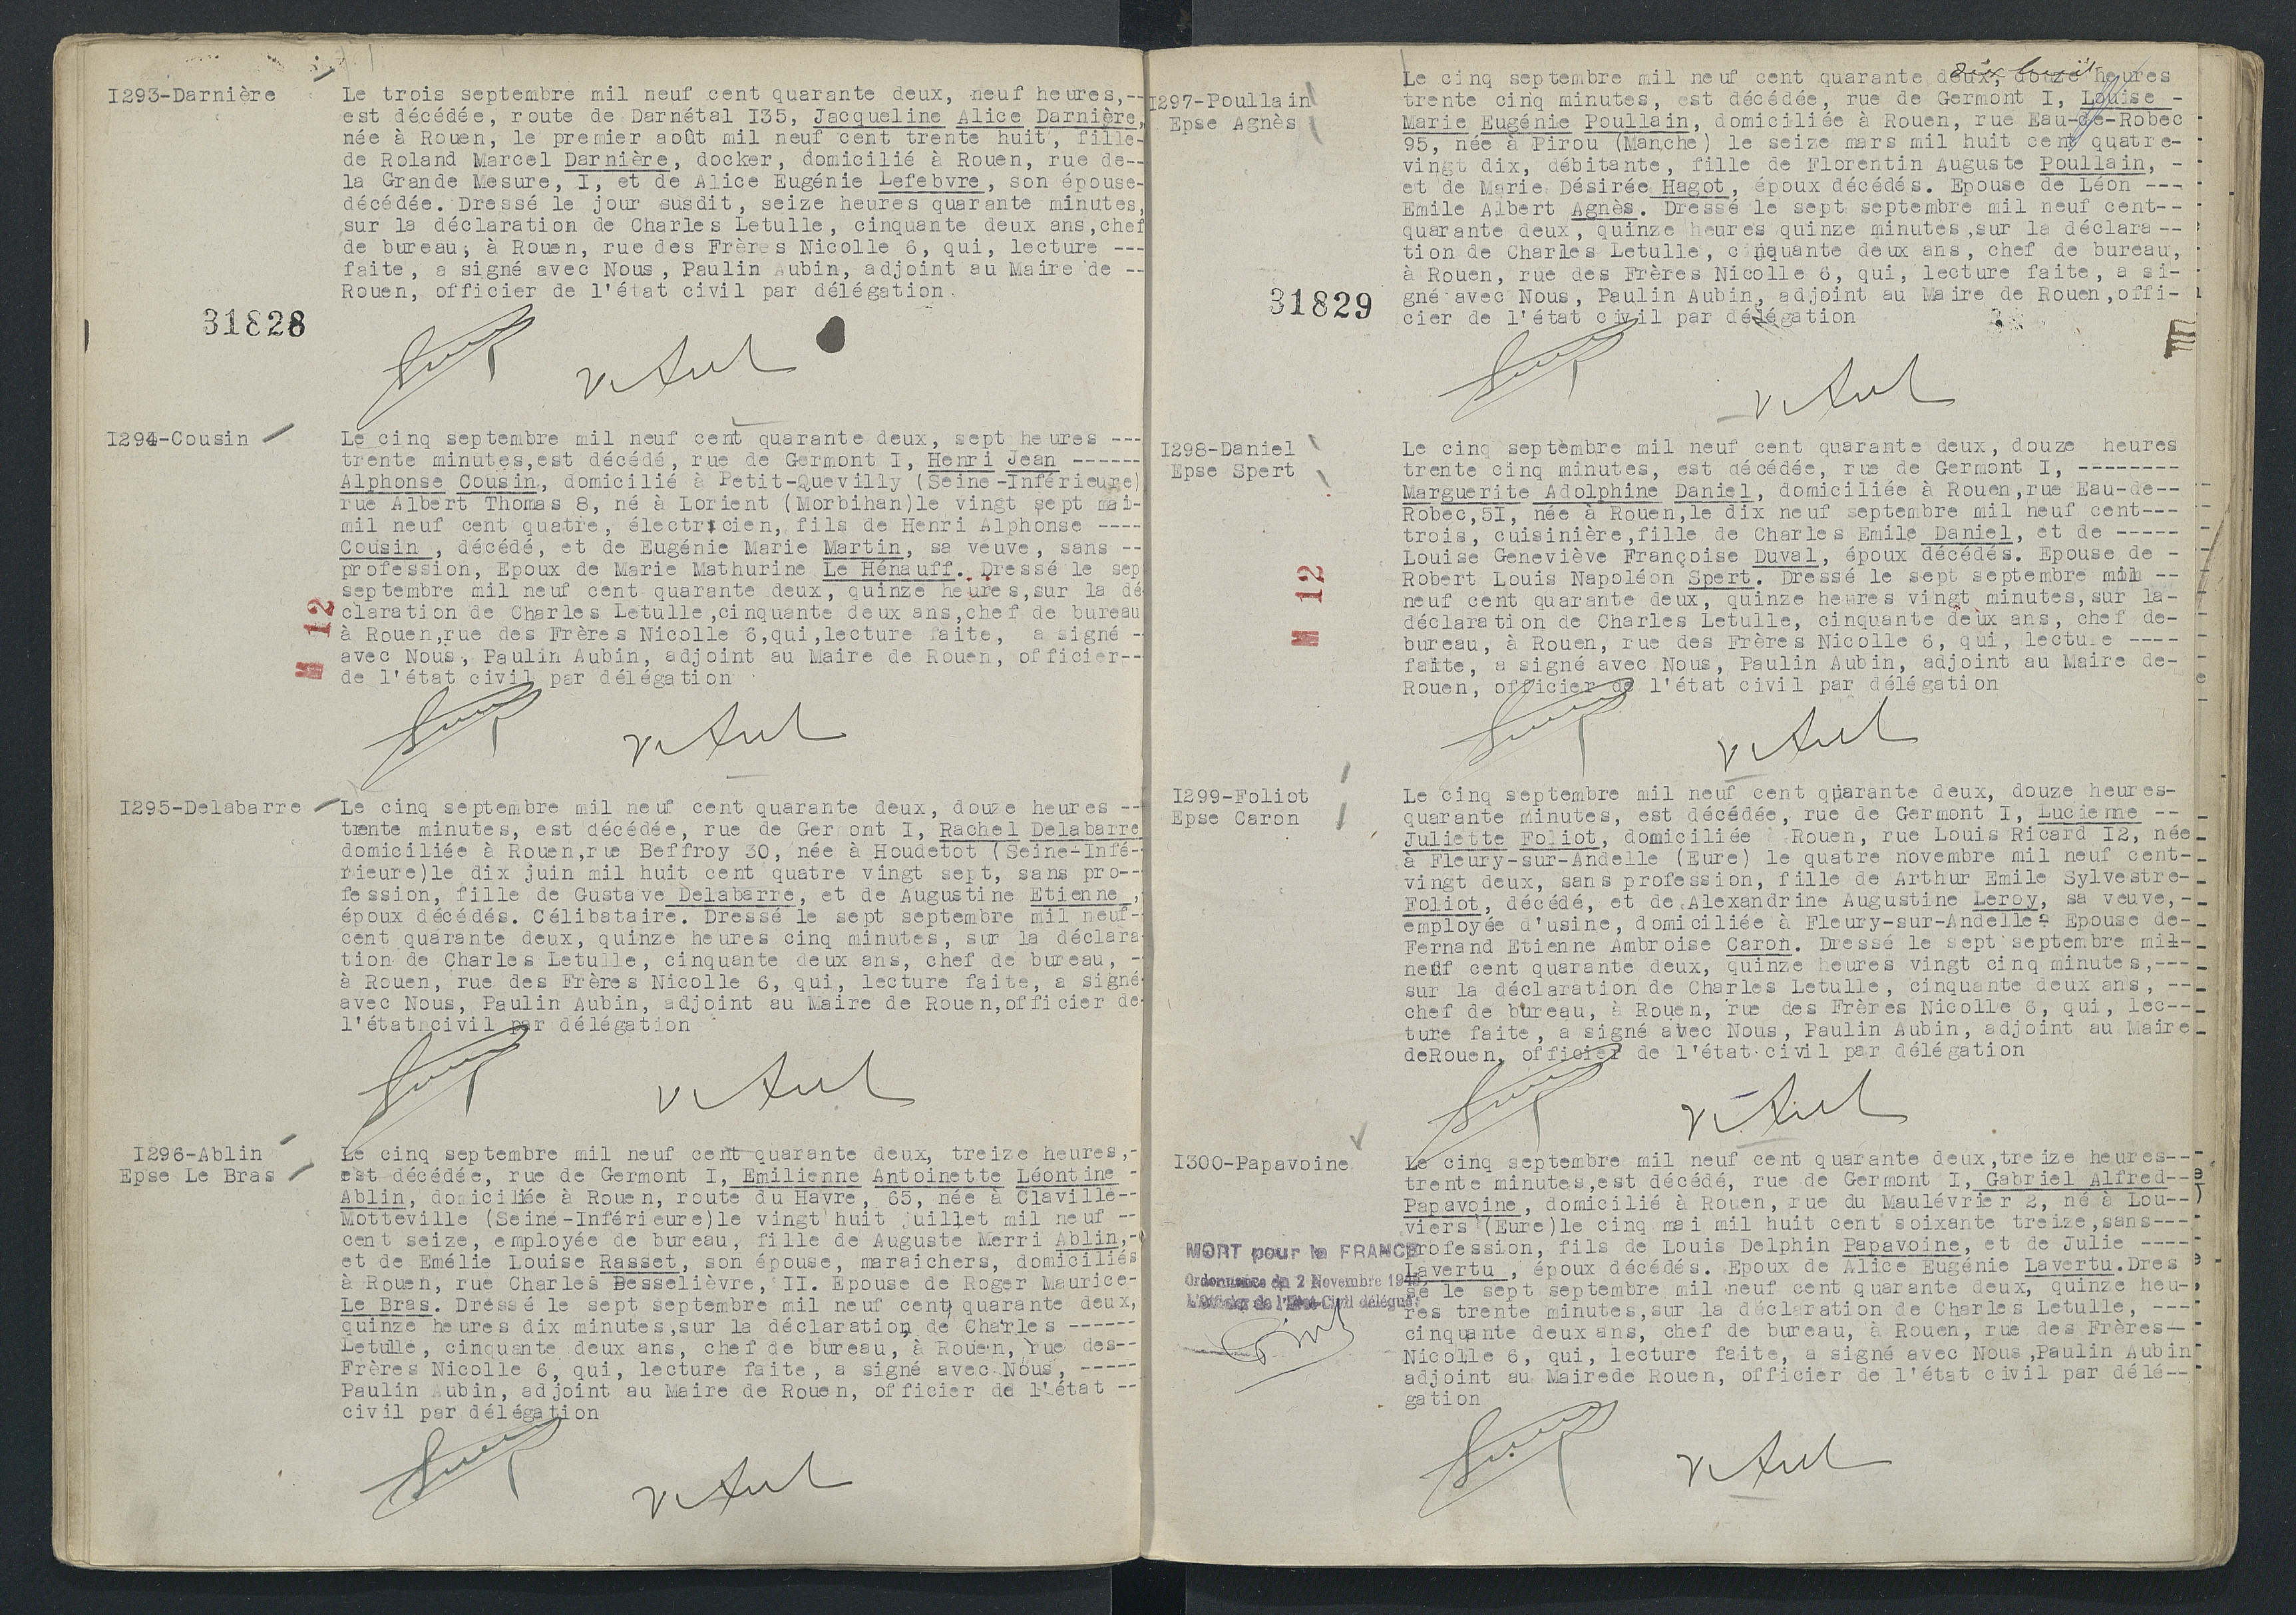 I293-Darnière
Le trois septembre mil neuf cent quarante deux, neuf heures,--
est décédée, route de Darnétal I35, Jacqueline Alice Darnière,
née à Rouen, le premier août mil neuf cent trente huit, fille-
de Roland Marcel Darnière, docker, domicilié à Rouen, rue de--
la Grande Mesure, I, et de Alice Eugénie Lefebvre, son épouse-
décédée. Dressé le jour susdit, seize heures quarante minutes,
sur la déclaration de Charles Letulle, cinquante deux ans,chef
de bureau, à Rouen, rue des Frères Nicolle 6, qui, lecture ---
faite, a signé avec Nous, Paulin Aubin, adjoint au Maire de --
Rouen, officier de l'état civil par délégation.
31828
I294-Cousin
Le cinq septembre mil neuf cent quarante deux, sept heures ---
trente minutes,est décédé, rue de Germont I, Henri Jean ------
Alphonse Cousin, domicilié à Petit-Quevilly (Seine-Inférieure)
rue Albert Thomas 8, né à Lorient (Morbihan)le vingt sept mai-
mil neuf cent quatre, électricien, fils de Henri Alphonse ----
Cousin , décédé, et de Eugénie Marie Martin, sa veuve, sans --
profession, Epoux de Marie Mathurine Le Hénauff. Dressé le sep
septembre mil neuf cent quarante deux, quinze heures,sur la dé
claration de Charles Letulle,cinquante deux ans,chef de bureau
à Rouen,rue des Frères Nicolle 6,qui,lecture faite, a signé -
avec Nous, Paulin Aubin, adjoint au Maire de Rouen, officier--
de l'état civil par délégation
M 12
I295-Delabarre
Le cinq septembre mil neuf cent quarante deux, douze heures --
trente minutes, est décédée, rue de Germont I, Rachel Delabarre
domiciliée à Rouen,rue Beffroy 30, née à Houdetot (Seine-Infé-
rieure)le dix juin mil huit cent quatre vingt sept, sans pro--
fession, fille de Gustave Delabarre, et de Augustine Etienne ,
époux décédés. Célibataire. Dressé le sept septembre mil neuf-
cent quarante deux, quinze heures cinq minutes, sur la déclara
tion de Charles Letulle, cinquante deux ans, chef de bureau, -
à Rouen, rue des Frères Nicolle 6, qui, lecture faite, a signé
avec Nous, Paulin Aubin, adjoint au Maire de Rouen,officier de
l'état civil par délégation
I296-Ablin
Epse Le Bras
Le cinq septembre mil neuf cent quarante deux, treize heures,-
est décédée, rue de Germont I, Emilienne Antoinette Léontine -
Ablin, domiciliée à Rouen, route du Havre, 65, née à Claville--
Motteville (Seine-Inférieure)le vingt huit juillet mil neuf --
cent seize, employée de bureau, fille de Auguste Merri Ablin,-
et de Emélie Louise Rasset, son épouse, maraichers, domiciliés
à Rouen, rue Charles Besselièvre, II. Epouse de Roger Maurice-
Le Bras. Dressé le sept septembre mil neuf cent quarante deux,
quinze heures dix minutes,sur la déclaration de Charles ------
Letulle, cinquante deux ans, chef de bureau, à Rouen, rue des--
Frères Nicolle 6, qui, lecture faite, a signé avec Nous, -----
Paulin Aubin, adjoint au Maire de Rouen, officier de l'état --
civil par délégation
I297-Poullain
Epse Agnès
dix huit
Le cinq septembre mil neuf cent quarante deux, douze heures
trente cinq minutes, est décédée, rue de Germont I, Louise -
Marie Eugénie Poullain, domiciliée à Rouen, rue Eau-de-Robec
95, née à Pirou (Manche) le seize mars mil huit cent quatre-
vingt dix, débitante, fille de Florentin Auguste Poullain, -
et de Marie Désirée Hagot, époux décédés. Epouse de Léon ---
Emile Albert Agnès. Dressé le sept septembre mil neuf cent--
quarante deux, quinze heures quinze minutes,sur la déclara--
tion de Charles Letulle, cinquante deux ans, chef de bureau,
à Rouen, rue des Frères Nicolle 6, qui, lecture faite, a si-
gné avec Nous, Paulin Aubin, adjoint au Maire de Rouen,offi-
cier de l'état civil par délégation
31829
I298-Daniel
Epse Spert
Le cinq septembre mil neuf cent quarante deux, douze heures
trente cinq minutes, est décédée, rue de Germont I, --------
Marguerite Adolphine Daniel, domiciliée à Rouen,rue Eau-de--
Robec,5I, née à Rouen,le dix neuf septembre mil neuf cent---
trois, cuisinière,fille de Charles Emile Daniel, et de -----
Louise Geneviève Françoise Duval, époux décédés. Epouse de -
Robert Louis Napoléon Spert. Dressé le sept septembre mil --
neuf cent quarante deux, quinze heures vingt minutes,sur la-
déclaration de Charles Letulle, cinquante deux ans, chef de-
bureau, à Rouen, rue des Frères Nicolle 6, qui, lecture ----
faite, a signé avec Nous, Paulin Aubin, adjoint au Maire de-
Rouen, officier de l'état civil par délégation
M 12
I299-Foliot
Epse Caron
Le cinq septembre mil neuf cent quarante deux, douze heures-
quarante minutes, est décédée, rue de Germont I, Lucienne --
Juliette Foliot, domiciliée Rouen, rue Louis Ricard I2, née
à Fleury-sur-Andelle (Eure) le quatre novembre mil neuf cent-
vingt deux, sans profession, fille de Arthur Emile Sylvestre-
Foliot, décédé, et de Alexandrine Augustine Leroy, sa veuve,-
employée d'usine, domiciliée à Fleury-sur-Andelle- Epouse de-
Fernand Etienne Ambroise Caron. Dressé le sept septembre mil-
neuf cent quarante deux, quinze heures vingt cinq minutes,---
sur la déclaration de Charles Letulle, cinquante deux ans, --
chef de bureau, à Rouen, rue des Frères Nicolle 6, qui, lec--
ture faite, a signé avec Nous, Paulin Aubin, adjoint au Maire
deRouen, officier de l'état civil par délégation
I300-Papavoine
Le cinq septembre mil neuf cent quarante deux,treize heures--
trente minutes,est décédé, rue de Germont I, Gabriel Alfred--
Papavoine, domicilié à Rouen, rue du Maulévrier 2, né à Lou--
viers (Eure)le cinq mai mil huit cent soixante treize,sans---
profession, fils de Louis Delphin Papavoine, et de Julie ----
Lavertu , époux décédés. Epoux de Alice Eugénie Lavertu.Dres
sé le sept septembre mil neuf cent quarante deux, quinze heu-
res trente minutes,sur la déclaration de Charles Letulle, ---
cinquante deux ans, chef de bureau, à Rouen, rue des Frères-
Nicolle 6, qui, lecture faite, a signé avec Nous,Paulin Aubin
adjoint au Mairede Rouen, officier de l'état civil par délé--
gation
MORT pour la FRANCE
Ordonnance du 2 Novembre 1945
L'Officier de l'Etat-Civil délégué